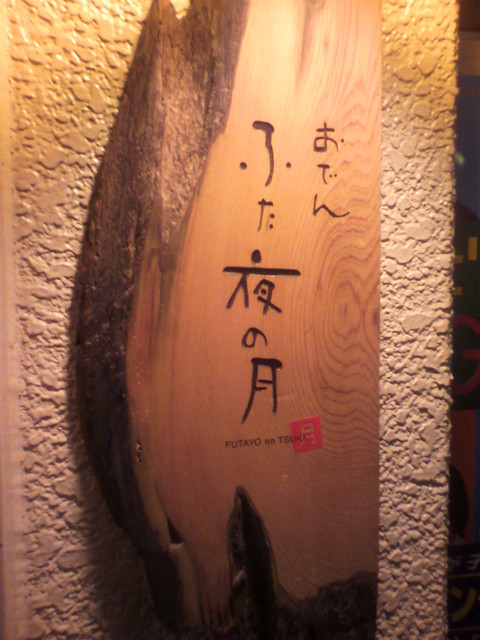 おでん
ふた夜の月
FUTAYO no TSUKI
月